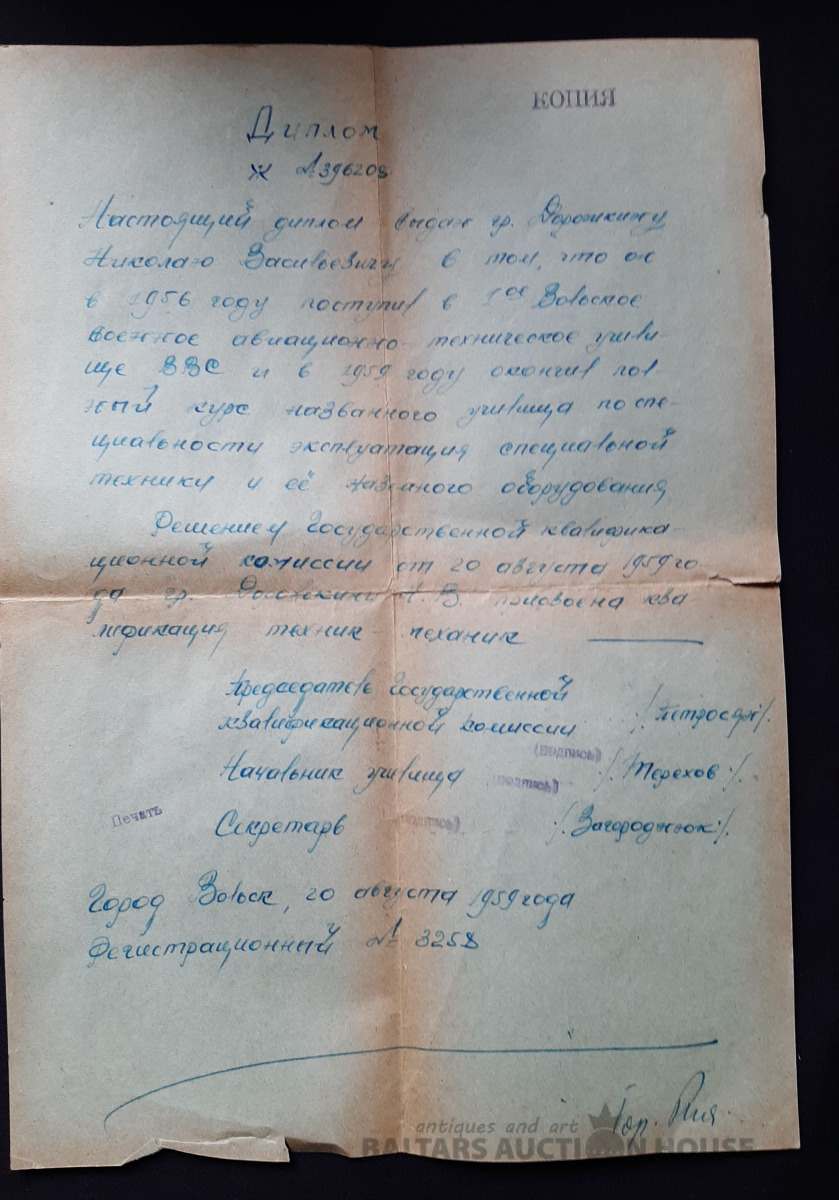 КОПИЯ
Диплом
Ж №396208
Настоящий диплом выдан гр. Дорожкину
Николаю Васильевичу в том, что он
в 1956 году поступил в 1ое Вольское
военное авиационно-техническое учили-
ще ВВС и в 1959 году окончил пол
ный курс названного училища по спе-
циальности эксплуатация специальной
техники и её наземного оборудования
Решением Государственной квалифика-
ционной комиссии от 20 августа 1959 го-
да гр. Н. В. присвоена ква-
лификация техник-механик
Председатель Государственной
квалификационной комиссии /Петросян/.
(подпись)
Начальник училища (подпись) /Терехов/.
Печать
Секретарь (подпись) /Загороднюк/.
Город Вольск, 20 августа 1959 года
Регистрационный № 3258
antiques and art
BALTARS AUCTION HOUSE